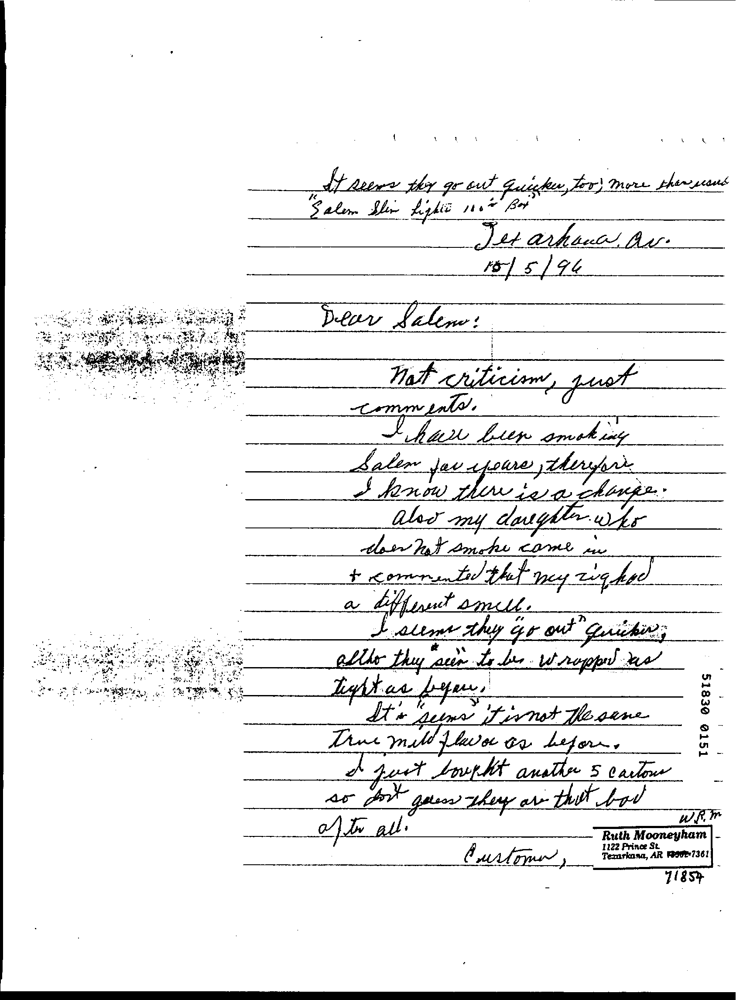 It seems they go out quicker, too; more than usual
"Salem Slim Lights 100's Box"
Texarkana, Ar.
10/5/94
Dear Salem:
Not criticism, just
comments.
I have been smoking
Salem for years, therefore
I know there is a change.
also my daughter who
does not smoke came in
+ commented that my cig had
a different smell.
I seems they "go out" quicker;
altho they "seem" to be wrapped as
tight as before.
It's "seems" it is not the same
true mild flavor as before.
I just bought another 5 cartons
so don't guess they are that bad
after all.
Customer,
W.R.M
Ruth Mooneyham
1122 Prince St.
Texarkana, AR 7361
71854
51830 0151